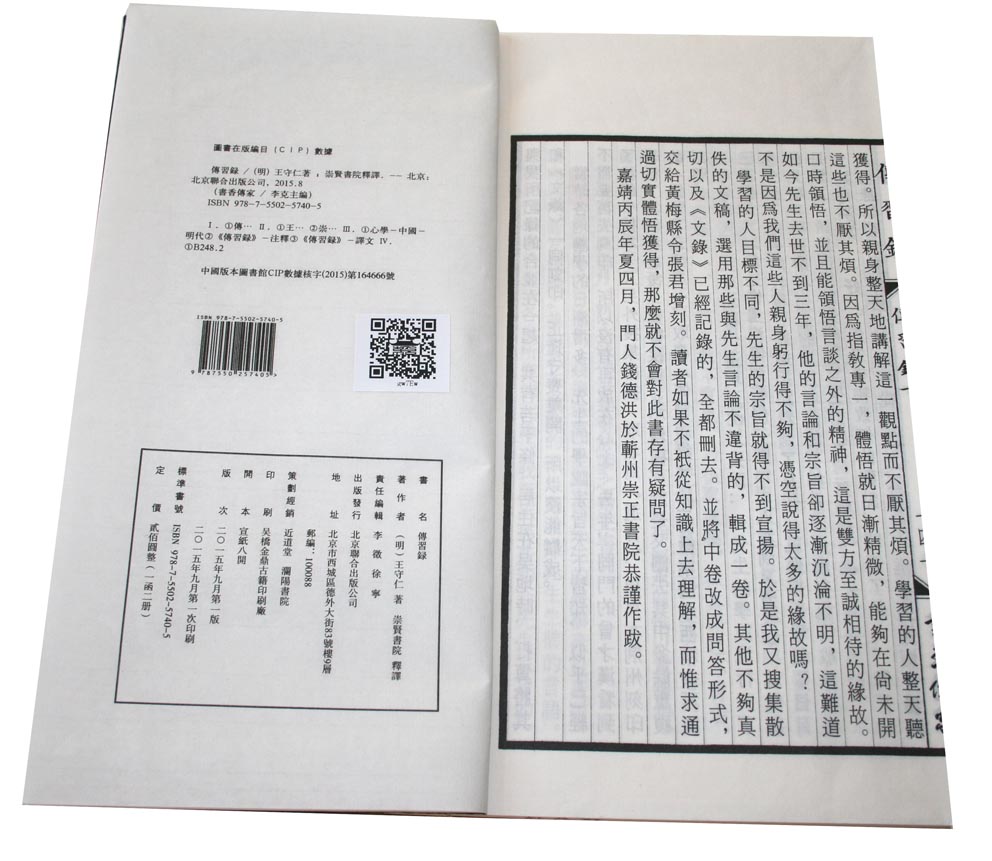 圖書在版編目(CIP)數據
傳習録 / (明) 王守仁著 ; 崇賢書院釋譯. -- 北京:
北京聯合出版公司, 2015.8
(書香傳家 / 李克主編)
ISBN 978-7-5502-5740-5
Ⅰ. ①傳… Ⅱ. ①王… ②崇… Ⅲ. ①心學-中國-
明代②《傳習録》-注釋③《傳習録》-譯文 Ⅳ.
①B248.2
中國版本圖書館CIP數據核字(2015)第164666號
ISBN 978-7-5502-5740-5
9 787550 257405 >
書名 傳習録
著作者 (明)王守仁 著 崇賢書院 釋譯
責任編輯 李徵 徐寧
出版發行 北京聯合出版公司
地址 北京市西城區德外大街83號樓9層
郵編:100088
策劃經銷 近道堂 瀾陽書院
印刷 吴橋金鼎古籍印刷廠
開本 宣紙八開
版次 二〇一五年九月第一版
二〇一五年九月第一次印刷
標準書號 ISBN 978-7-5502-5740-5
定價 貳佰圓整(一函二册)
傳習録
獲得。所以親身整天地講解這一觀點而不厭其煩。學習的人整天聽
這些也不厭其煩。因爲指教專一,體悟就日漸精微,能夠在尚未開
口時領悟,並且能領悟言談之外的精神,這是雙方至誠相待的緣故。
如今先生去世不到三年,他的言論和宗旨卻逐漸沉淪不明,這難道
不是因爲我們這些人親身躬行得不夠,憑空說得太多的緣故嗎?
學習的人目標不同,先生的宗旨就得不到宣揚。於是我又搜集散
佚的文稿,選用那些與先生言論不違背的,輯成一卷。其他不夠真
切以及《文錄》已經記錄的,全都刪去。並將中卷改成問答形式,
交給黃梅縣令張君增刻。讀者如果不祇從知識上去理解,而惟求通
過切實體悟獲得,那麼就不會對此書存有疑問了。
嘉靖丙辰年夏四月,門人錢德洪於蘄州崇正書院恭謹作跋。